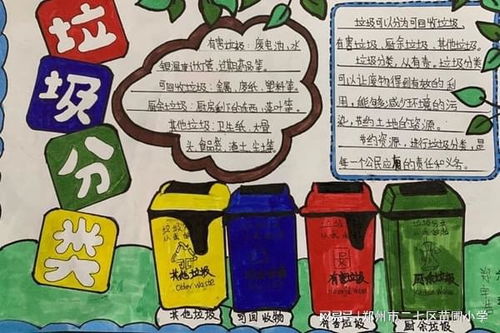 垃
圾
分
类
有害垃圾：废电池、水
银温度计灯管、过期药品等。
可回收垃圾：金属、废纸、塑料等。
厨余垃圾：厨房剩下的东西、菜叶等。
其他垃圾：卫生纸、大骨
头、食品袋、渣土、尘土等
垃圾可以分为可回收垃圾、
有害垃圾、厨余垃圾、其他垃圾。
垃圾分类，从有责。垃圾分类
可以让废物得到有效的利
用，能够减少环境的污
染，节约土地的资源。
节约资源，进行垃圾分类，是
每一个公民应有的责任和义务。
其他垃圾
Other Waste
有害垃圾
厨余垃圾
其他垃圾
可回收物
有害垃圾
厨余垃圾
搜狐号|郑州市二七区苗圃小学